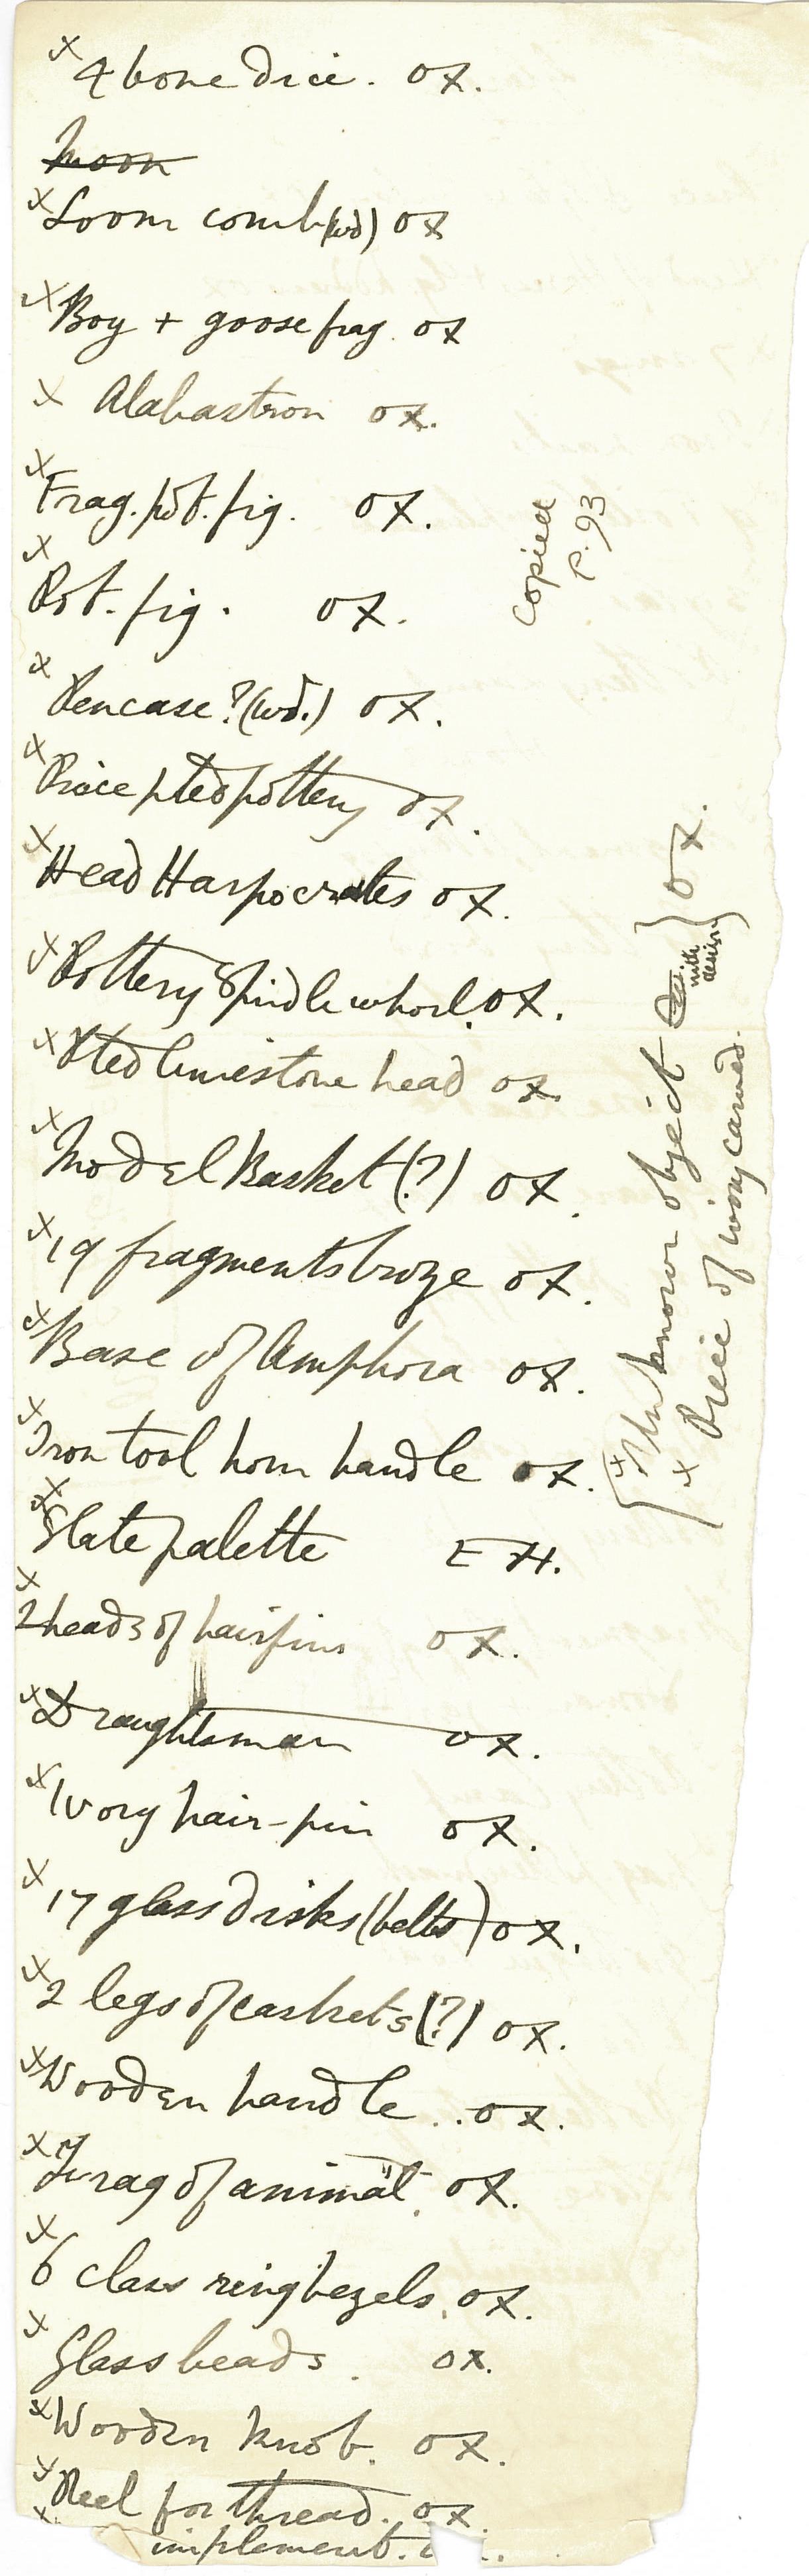 x 4 bone dice. OX.
Moon
x Loom comb (wd) OX
x Boy + goose frag. OX
x Alabastron OX.
x Frag. pot. fig. OX.
x Pot. fig. OX.
x Pencase? (wd.) OX.
x Piece pted pottery OX.
x Head Harpocrates OX.
x Pottery Spindle whorl. OX.
x Pted limestone head OX
x Model Basket (?) OX.
x 19 fragments broze OX.
x Base of Amphora OX.
x Iron tool horn handle OX.
x Slate palette E H.
x 2 heads of hairpins OX.
x Draughtsman OX.
x Ivory hair-pin OX.
x 17 glass disks (belts) OX.
x 2 legs of caskets (?) OX.
x Wooden handle.. OX.
x Frag of animal. OX.
x 6 class ring bezels. OX.
x Glass beads. OX.
x Wooden knob. OX.
x Reel for thread. OX.
x implement.
copied
P. 93
x Unknown object with design } OX.
x Piece of ivory carved.